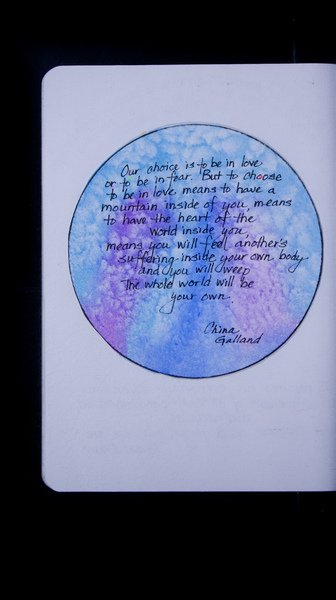 Our choice is to be in love
or to be in fear. But to choose
to be in love means to have a
mountain inside of you, means
to have the heart of the
world inside you,
means you will feel another's
suffering inside your own body
and you will weep
The whole world will be
your own.
China
Galland